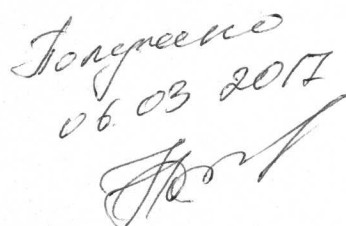 Получено
06.03 2017